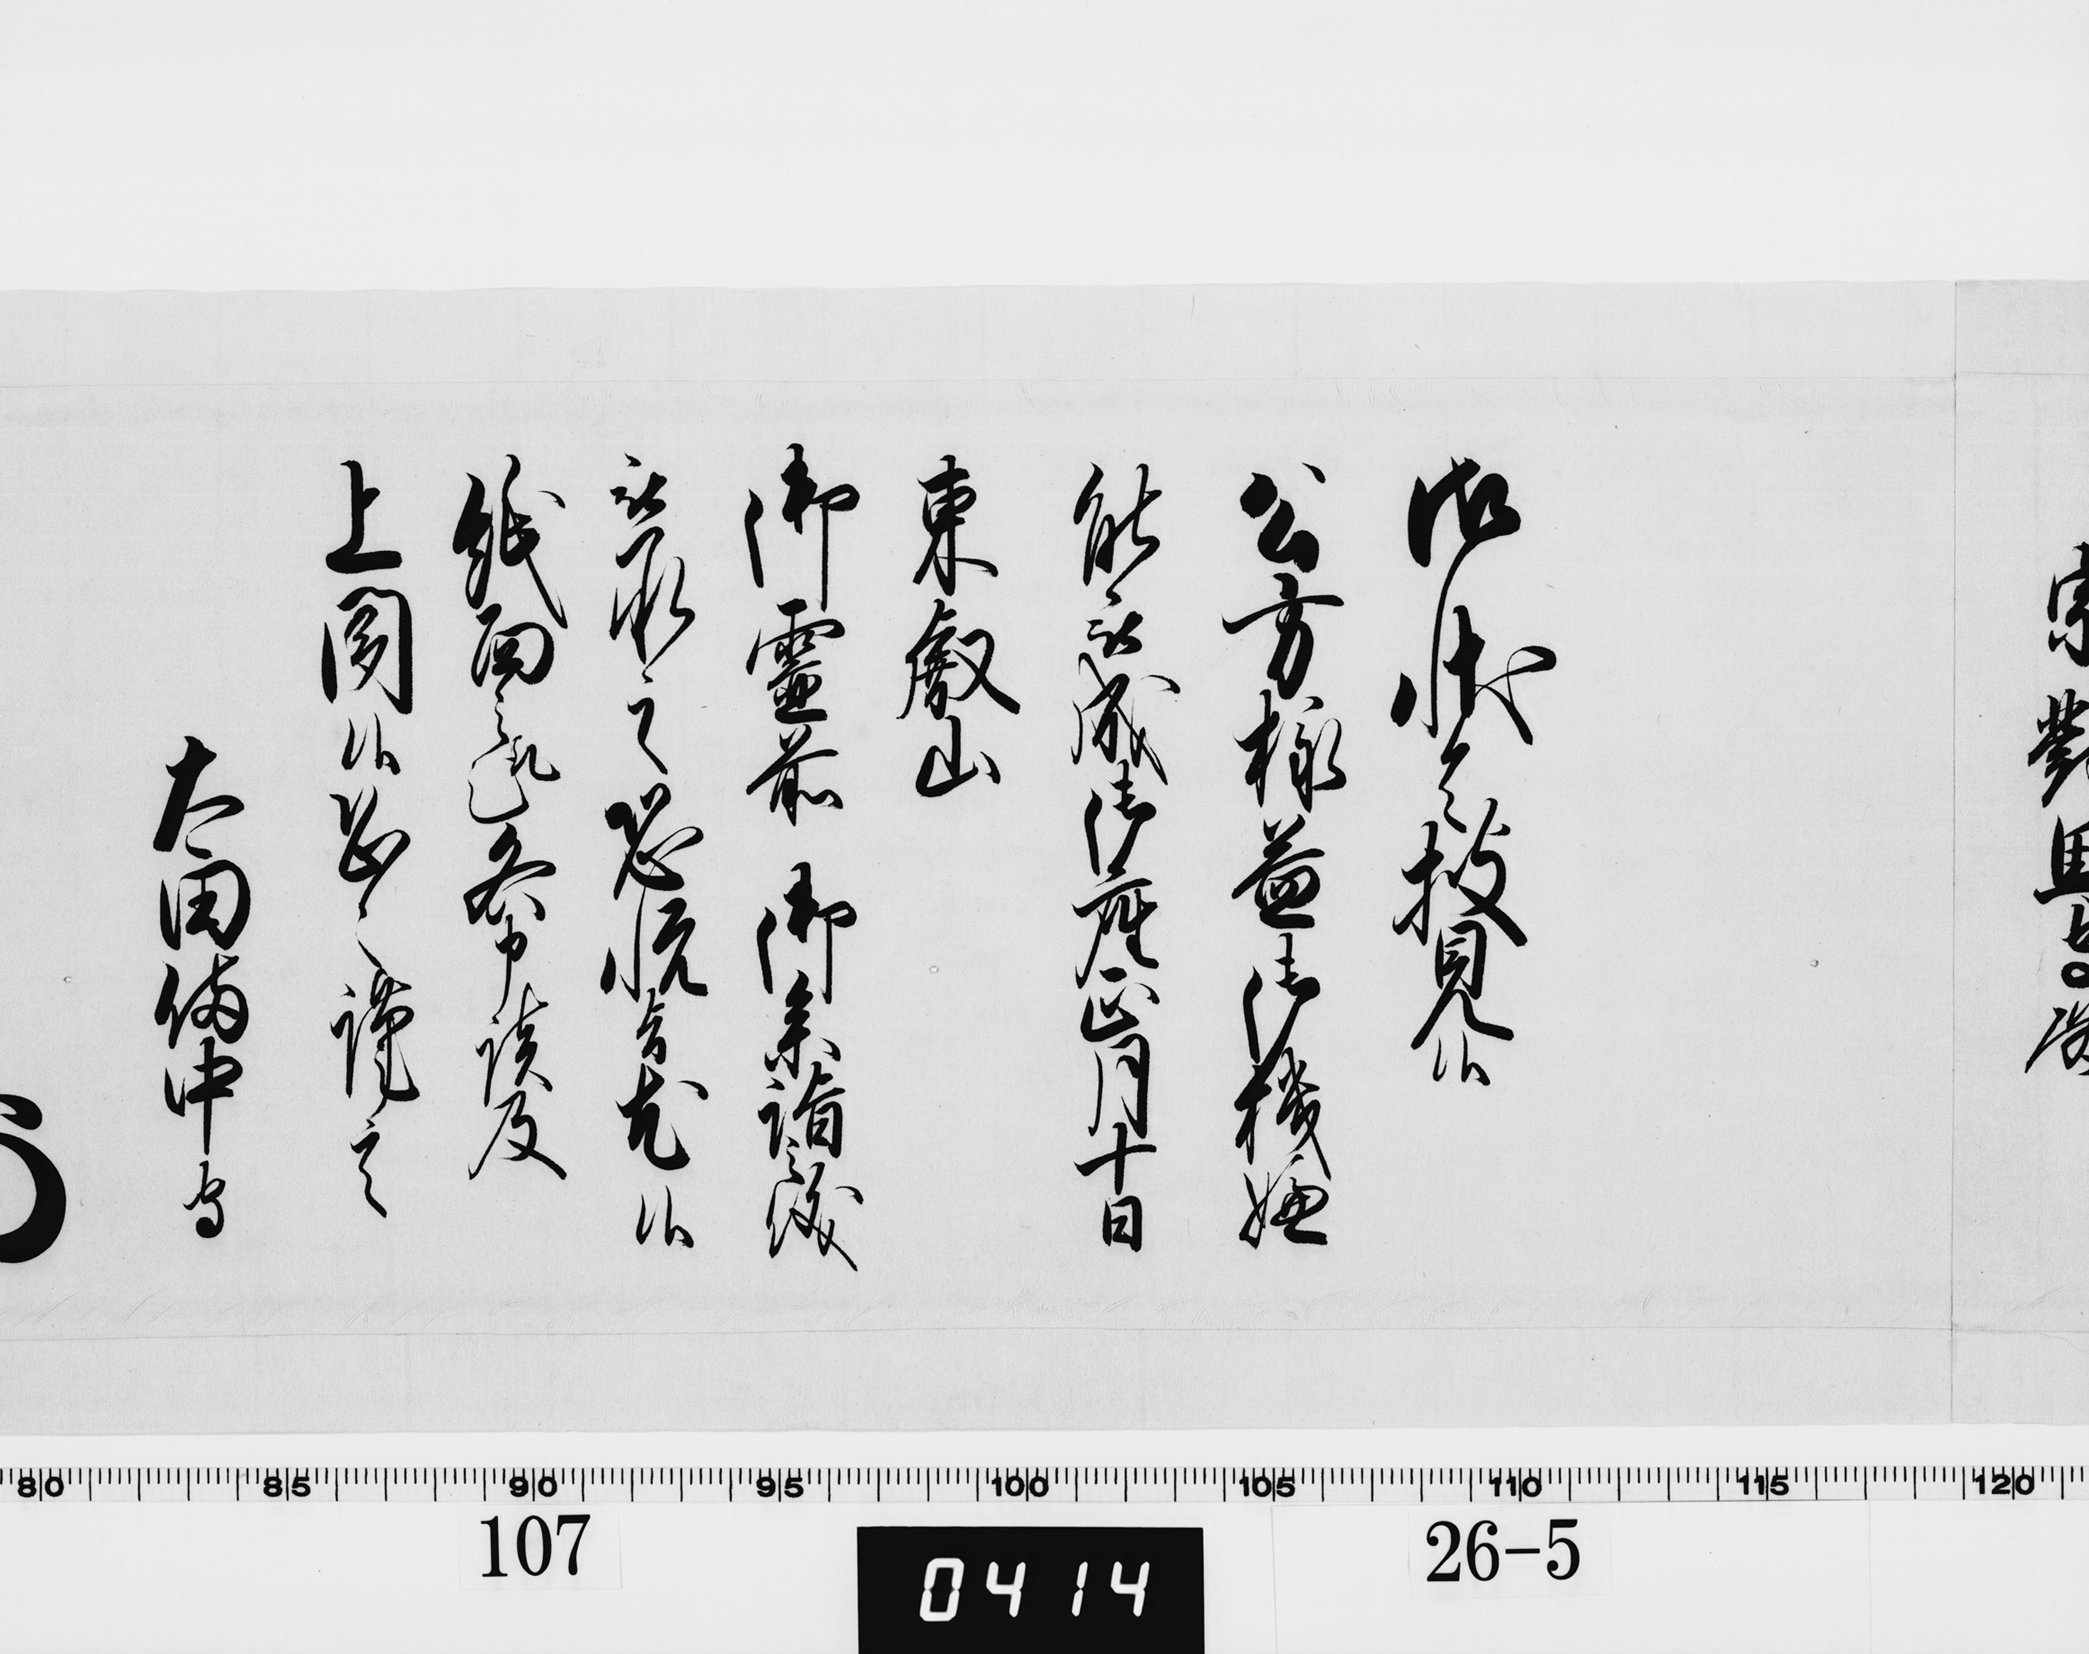 宗對馬守殿
御状令披見候
公方様益御機嫌
能被成御座正月十日
東叡山
御靈前 御参詣之段
被承之恐悦旨尤候
紙面之趣各申談及
上聞候恐々謹言
太田備中守
80 85 90 95 100 105 110 115 120
107
0414
26-5